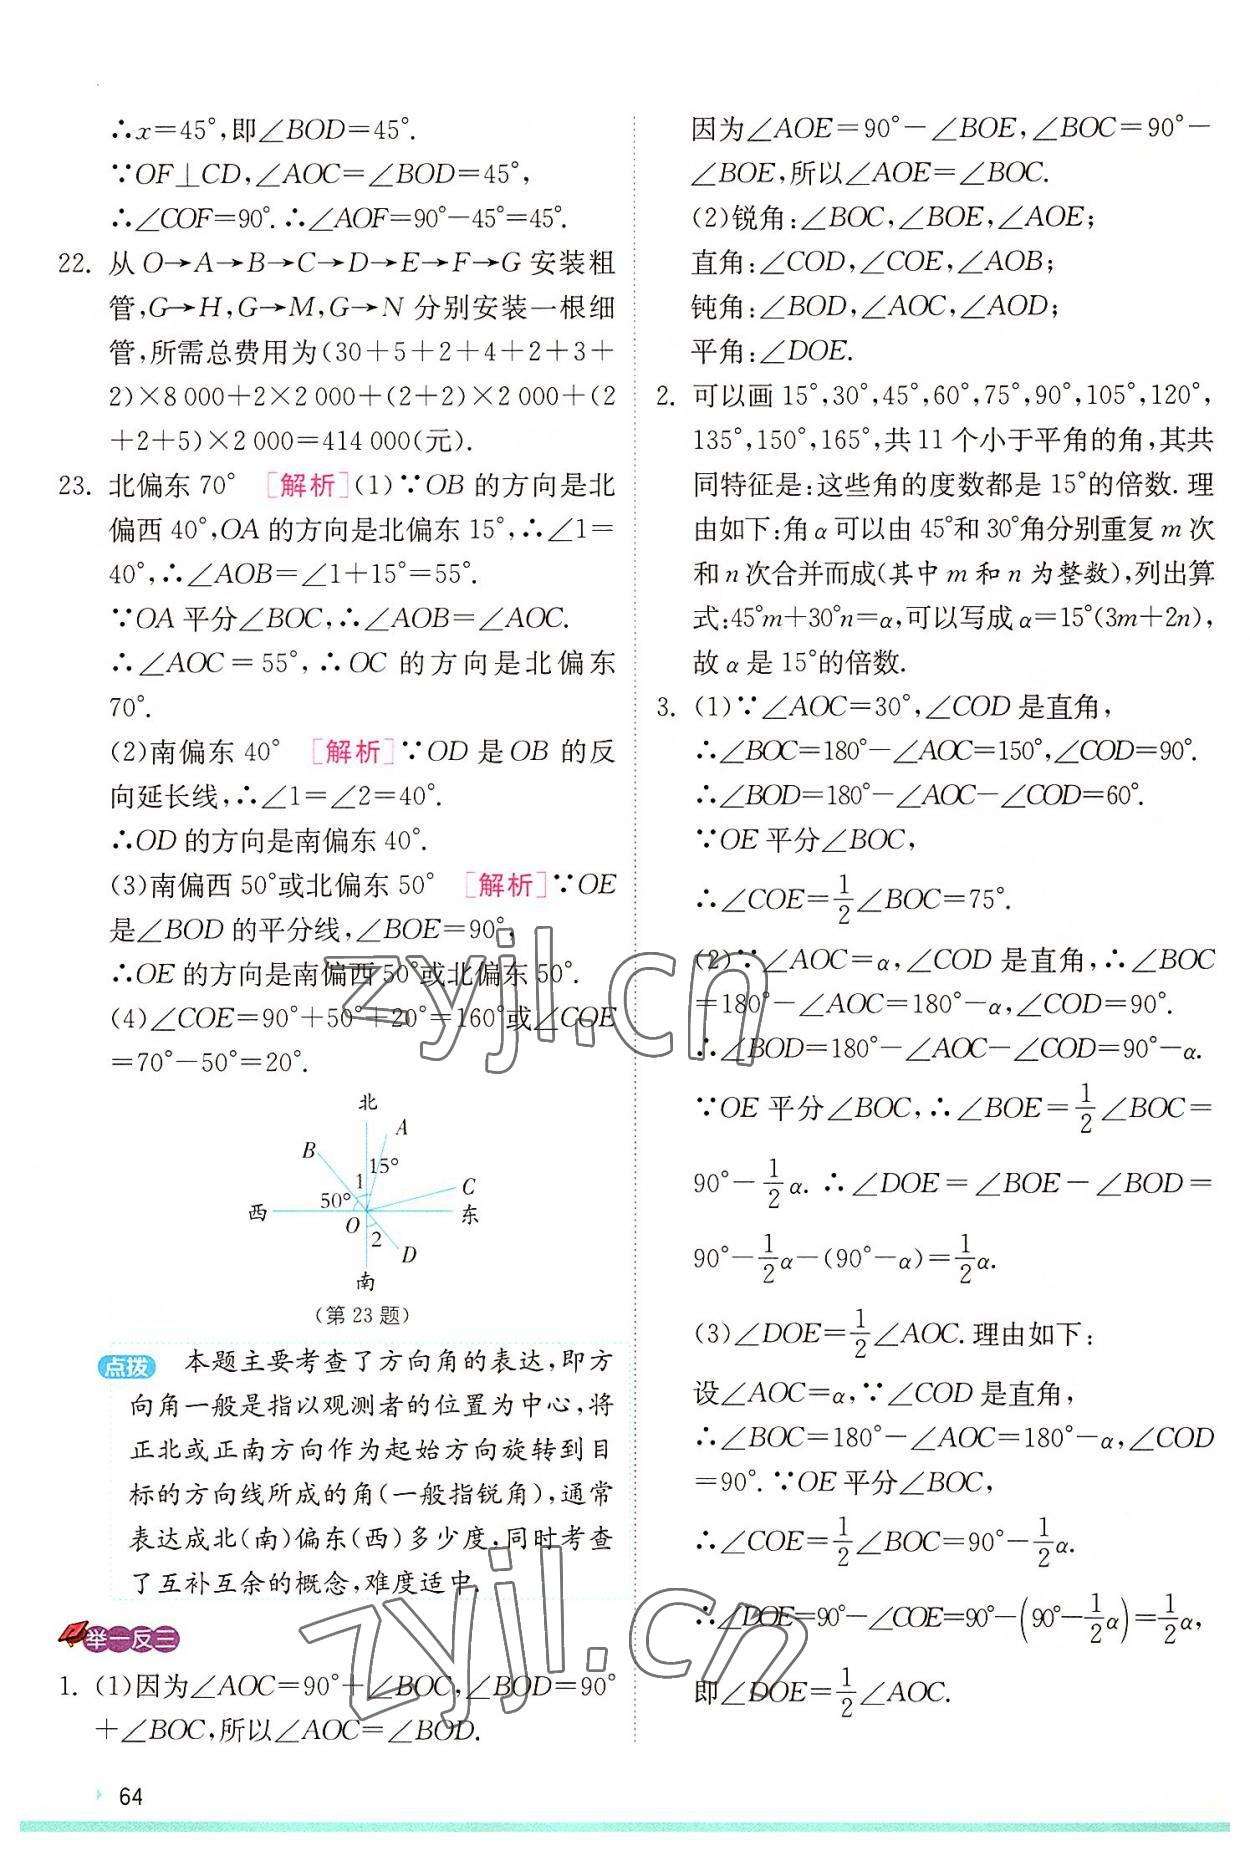 ∴x=45°,即∠BOD=45°.
∵OF⊥CD,∠AOC=∠BOD=45°,
∴∠COF=90°.∴∠AOF=90°-45°=45°.
22. 从O→A→B→C→D→E→F→G安装粗
管,G→H,G→M,G→N分别安装一根细
管,所需总费用为(30+5+2+4+2+3+
2)×8 000+2×2 000+(2+2)×2 000+(2
+2+5)×2 000=414 000(元).
23. 北偏东70° [解析](1)∵OB的方向是北
偏西40°,OA的方向是北偏东15°,∴∠1=
40°,∴∠AOB=∠1+15°=55°.
∵OA平分∠BOC,∴∠AOB=∠AOC.
∴∠AOC=55°,∴OC的方向是北偏东
70°.
(2)南偏东40° [解析]∵OD是OB的反
向延长线,∴∠1=∠2=40°.
∴OD的方向是南偏东40°.
(3)南偏西50°或北偏东50° [解析]∵OE
是∠BOD的平分线,∠BOE=90°,
∴OE的方向是南偏西50°或北偏东50°.
(4)∠COE=90°+50°+20°=160°或∠COE
=70°-50°=20°.
北
A
B
15°
1
C
50°
西
东
O
2
D
南
(第23题)
点拨 本题主要考查了方向角的表达,即方
向角一般是指以观测者的位置为中心,将
正北或正南方向作为起始方向旋转到目
标的方向线所成的角(一般指锐角),通常
表达成北(南)偏东(西)多少度,同时考查
了互补互余的概念,难度适中.
举一反三
1. (1)因为∠AOC=90°+∠BOC,∠BOD=90°
+∠BOC,所以∠AOC=∠BOD.
64
因为∠AOE=90°-∠BOE,∠BOC=90°-
∠BOE,所以∠AOE=∠BOC.
(2)锐角:∠BOC,∠BOE,∠AOE;
直角:∠COD,∠COE,∠AOB;
钝角:∠BOD,∠AOC,∠AOD;
平角:∠DOE.
2. 可以画15°,30°,45°,60°,75°,90°,105°,120°,
135°,150°,165°,共11个小于平角的角,其共
同特征是:这些角的度数都是15°的倍数.理
由如下:角α可以由45°和30°角分别重复m次
和n次合并而成(其中m和n为整数),列出算
式:45°m+30°n=α,可以写成α=15°(3m+2n),
故α是15°的倍数.
3. (1)∵∠AOC=30°,∠COD是直角,
∴∠BOC=180°-∠AOC=150°,∠COD=90°.
∴∠BOD=180°-∠AOC-∠COD=60°.
∵OE平分∠BOC,
∴∠COE=1/2∠BOC=75°.
(2)∵∠AOC=α,∠COD是直角,∴∠BOC
=180°-∠AOC=180°-α,∠COD=90°.
∴∠BOD=180°-∠AOC-∠COD=90°-α.
∵OE平分∠BOC,∴∠BOE=1/2∠BOC=
90°-1/2α.∴∠DOE=∠BOE-∠BOD=
90°-1/2α-(90°-α)=1/2α.
(3)∠DOE=1/2∠AOC.理由如下:
设∠AOC=α,∵∠COD是直角,
∴∠BOC=180°-∠AOC=180°-α,∠COD
=90°.∵OE平分∠BOC,
∴∠COE=1/2∠BOC=90°-1/2α.
∴∠DOE=90°-∠COE=90°-(90°-1/2α)=1/2α,
即∠DOE=1/2∠AOC.
zyjl.cn
zyjl.cn